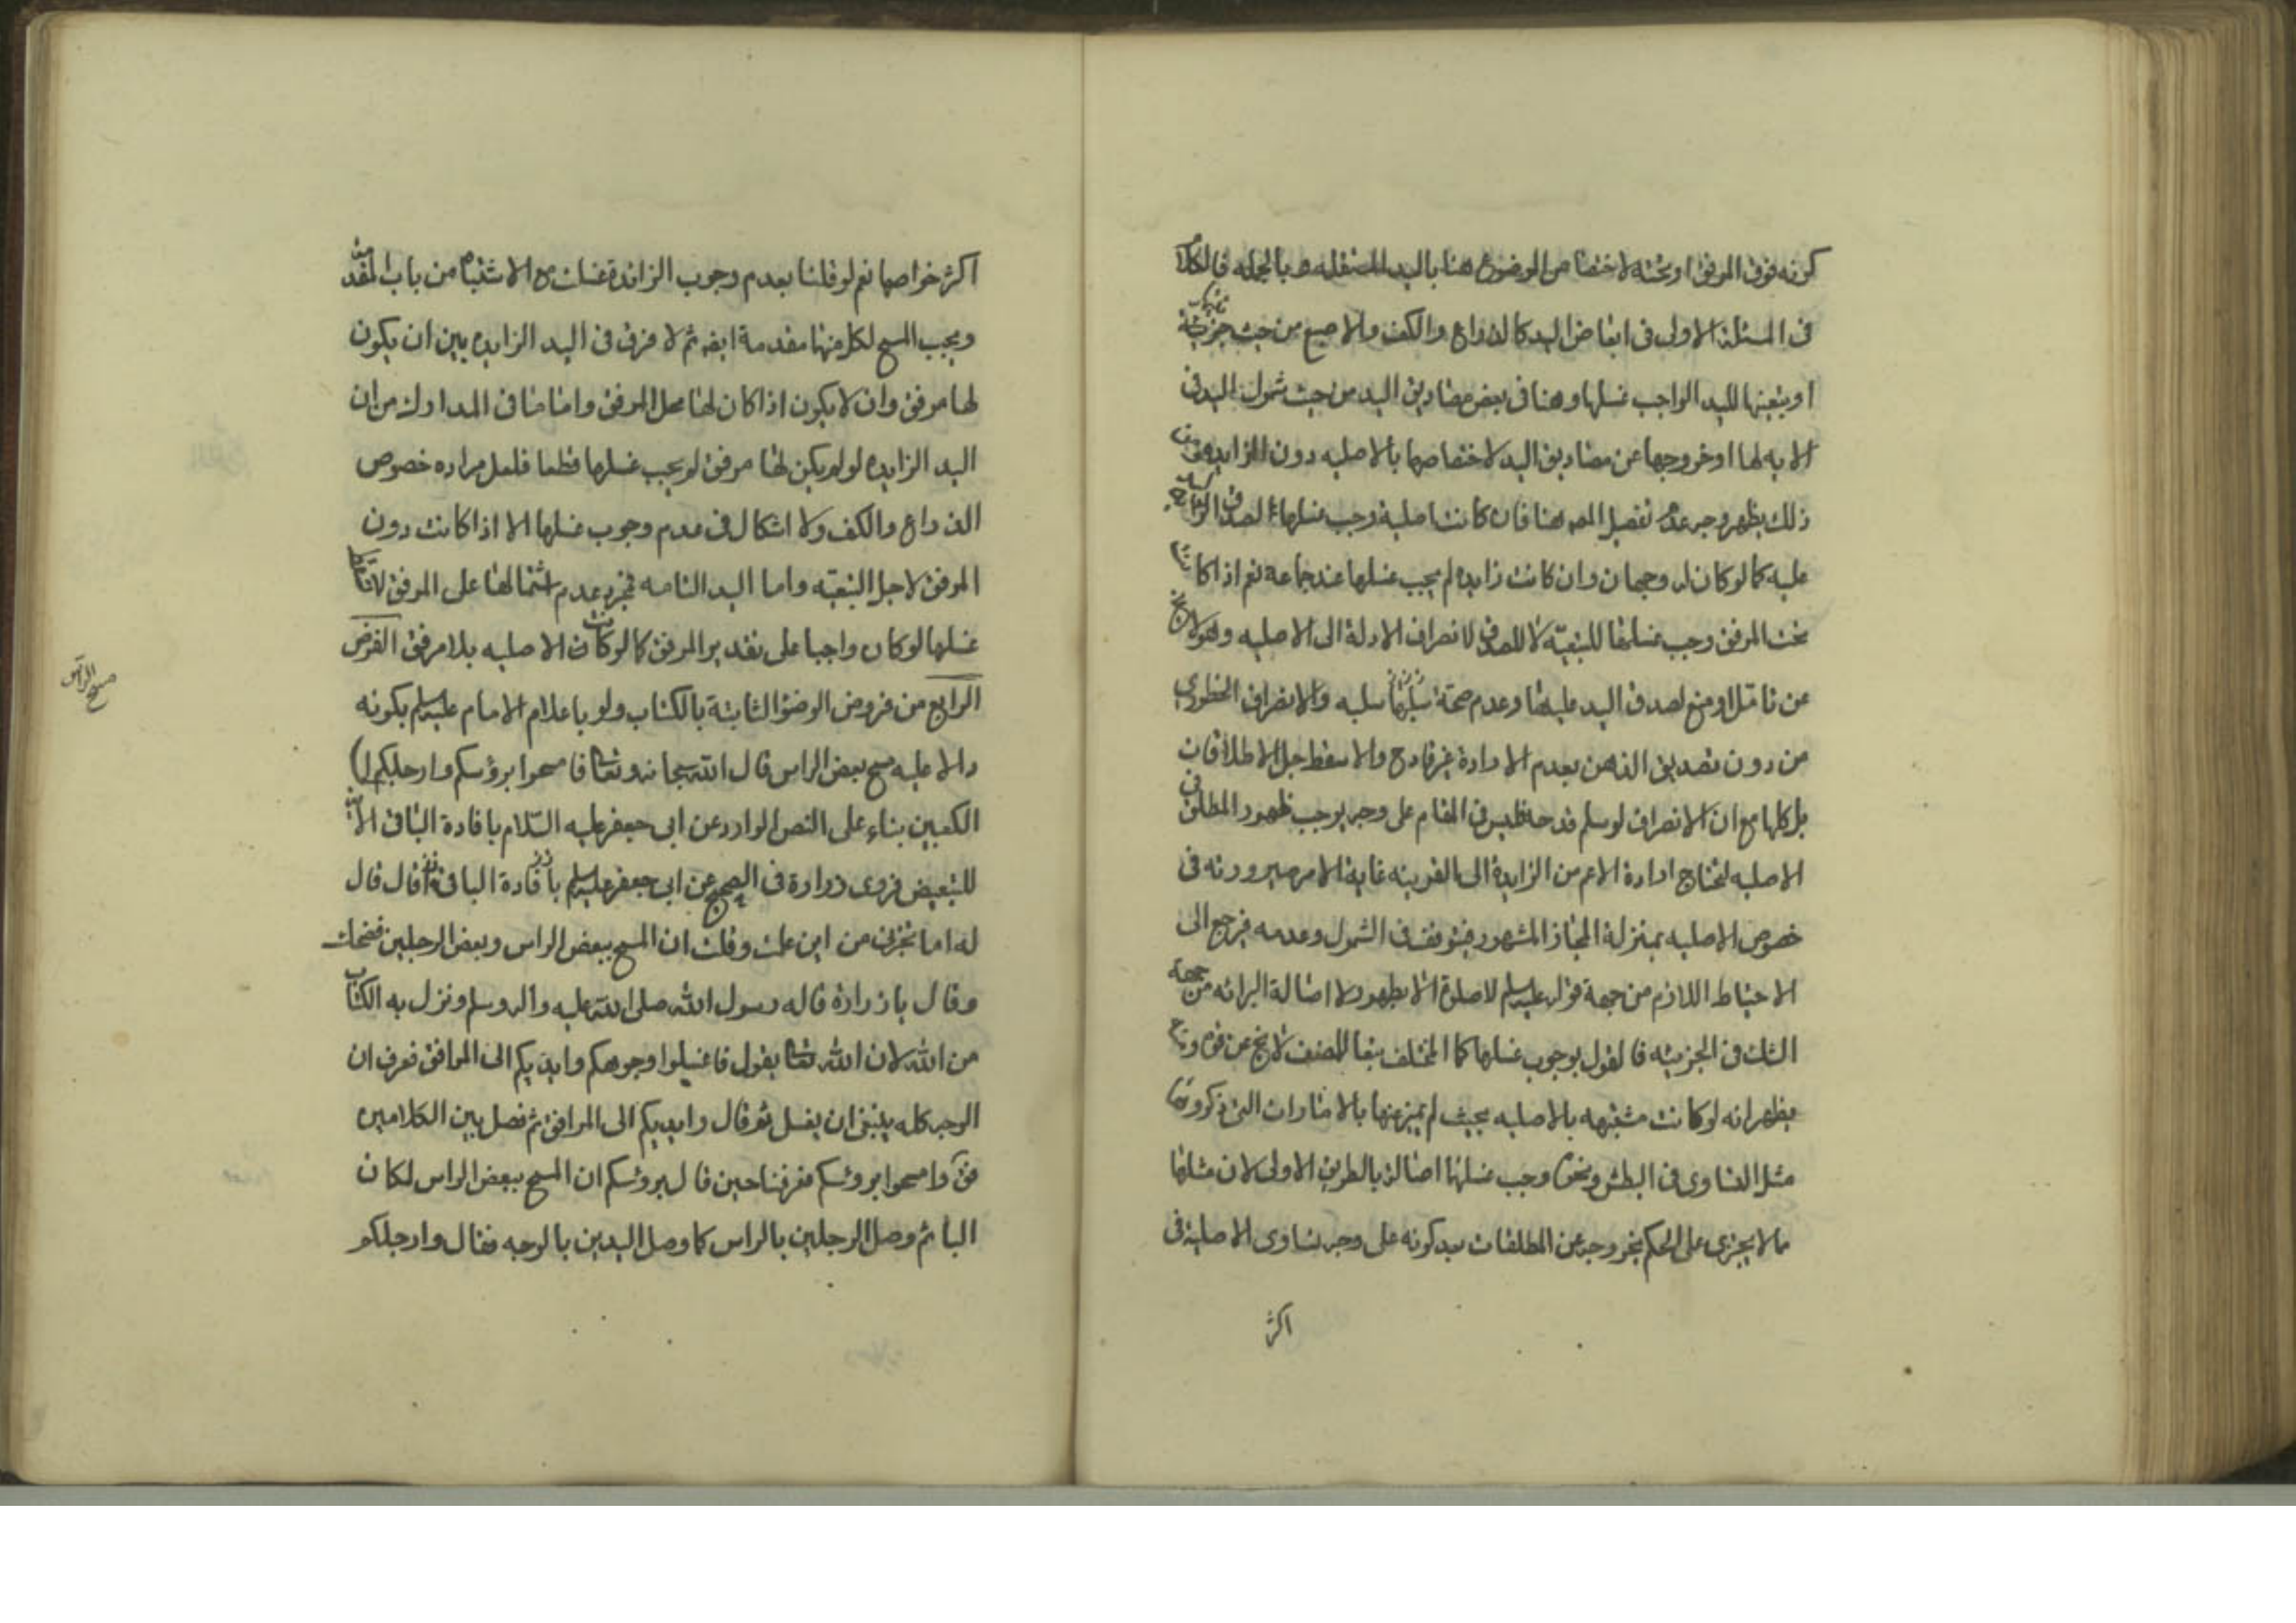 كونه فوق المرفق او تحته لاختصاص الموضوع هنا باليد المستقله و بالجمله فالكلام
فى المسئلة الاولى فى ابعاض اليد كالذراع والكف والاصبع من حيث جزئية
او تبعيتها لليد الواجب غسلها وهنا فى بعض مصاديق اليد من حيث شمول اليد فى
الايه لها او خروجها عن مصاديق اليد لاختصاصها بالاصليه دون الزايده ومن
ذلك يظهر وجه عدم تفصيل المص هنا فان كانت اصلية وجب غسلها لصدق
عليه كما لو كان له وجهان وان كانت زايده لم يجب غسلها عند جماعة نعم اذا كانت
تحت المرفق وجب غسلها للتبعيّة لا للصدق لانصراف الادلة الى الاصليه وهو لا يخ
عن تامّل او منع لصدق اليد عليها وعدم صحّة سلبها والانصراف الخطورى
من دون تصديق الذهن بعدم الارادة غير قادح والا سقط جل الاطلاقات
بل كلها مع ان الانصراف لو سلم قدحه فليس فى المقام على وجه يوجب ظهور المطلق فى
الاصليه لتحتاج ارادة الاعم من الزايدة الى القرينه غاية الامر صيرورته فى
خصوص الاصليه بمنزلة المجاز المشهور فيتوقف فى الشمول وعدمه فيرجع الى
الاحتياط اللازم من جهة قوله عليه السلم لا صلوة الا بطهور لا اصالة البرائه من جهة
الشك فى الجزئيه فالقول بوجوب غسلها كما المختلف تبعا للمصنف لا يخ عن قوة و
يظهر انه لو كانت مشتبهه بالاصليه بحيث لم يميز عنها بالامارات التى ذكروها
مثل التساوى فى البطش ونحوه وجب غسلها اصالة بالطريق الاولى لان مثلها
مما لا يجترى على الحكم بخروجه عن المطلقات بعد كونه على وجه يساوى الاصلية فى
اكثر
اكثر خواصها نعم لو قلنا بعدم وجوب الزائدة غسلت مع الاشتباه من باب المقدمة
ويجب المسح لكل منهما مقدمة ايضا ثم لا فرق فى اليد الزايده بين ان يكون
لها مرفق وان لا يكون اذا كان لها محل المرفق واما ما فى المدارك من ان
اليد الزايده لو لم يكن لها مرفق لم يجب غسلها قطعا فلعل مراده خصوص
الذراع والكف ولا اشكال فى عدم وجوب غسلها الا اذا كانت دون
المرفق لاجل التبعيّه واما اليد التامه فمجرد عدم اشتمالها على المرفق لا
غسلها لو كان واجبا على تقدير المرفق كما لو كانت الاصليه بلا مرفق الفرض
مسح الرأس
الرابع من فروض الوضؤ الثابتة بالكتاب ولو باعلام الامام عليه السلم بكونه
دالا عليه مسح بعض الراس قال الله سبحانه وتعالى فامسحوا برؤسكم وارجلكم الى
الكعبين بناء على النص الوارد عن ابى جعفر عليه السّلام بافادة الباء فى الآية
للتبعيض فروى زرارة فى الصحيح عن ابى جعفر عليه السلم قال قال
له اما تخبرنى من اين علمت وقلت ان المسح ببعض الراس وبعض الرجلين فضحك
وقال يا زرارة قاله رسول الله صلى الله عليه واله وسلم ونزل به الكتاب
من الله لان الله تعالى يقول فاغسلوا وجوهكم وايديكم الى المرافق فعرف ان
الوجه كله ينبغى ان يغسل ثم قال وايديكم الى المرافق ثم فصل بين الكلامين
فق وامسحوا برؤسكم فعرفنا حين قال برؤسكم ان المسح ببعض الراس لمكان
الباء ثم وصل الرجلين بالراس كما وصل اليدين بالوجه فقال وارجلكم